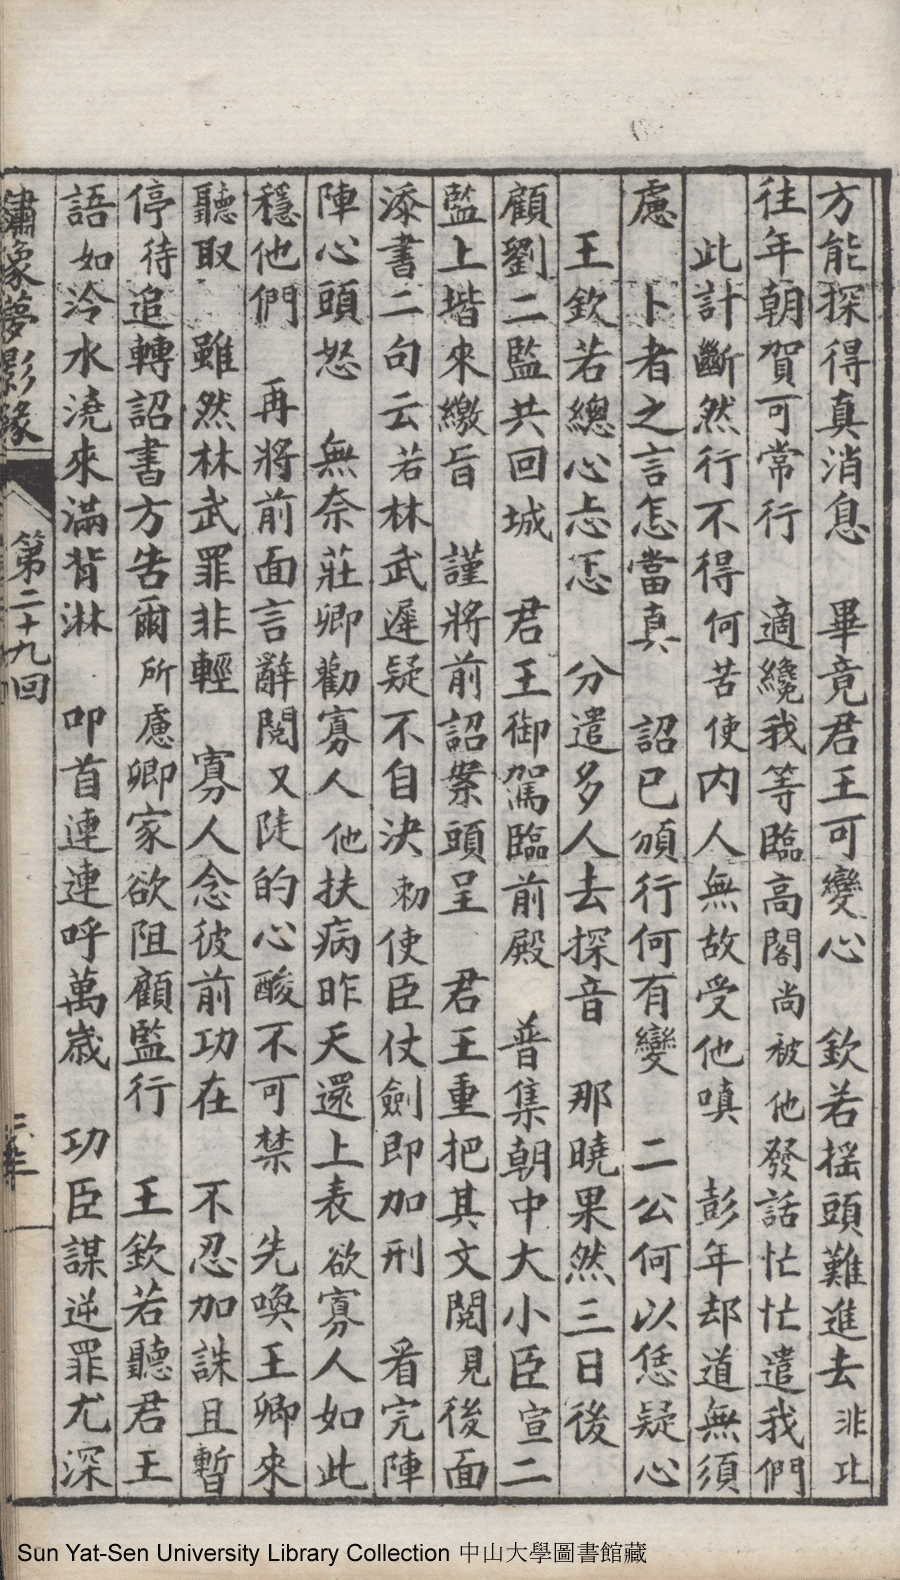 方能探得真消息　畢竟君王可變心　欽若揺頭難進去非比
往年朝賀可常行　適纔我等臨高閣尚被他發話忙忙遣我們
此計斷然行不得何苦使内人無故受他嗔　彭年却道無須
慮　卜者之言怎當真　詔已頒行何有變　二公何以恁疑心
王欽若總心忐忑　分遣多人去探音　那曉果然三日後
顧劉二監共回城　君王御駕臨前殿　普集朝中大小臣宣二
監上堦來繳旨　謹將前詔案頭呈　君王重把其文閱見後面
添書二句云若林武遲疑不自決勅使臣仗劍即加刑　看完陣
陣心頭怒　無奈莊卿勸寡人他扶病昨天還上表欲寡人如此
穩他們　再將前面言辭閱又陡的心酸不可禁　先喚王卿來
聽取　雖然林武罪非輕　寡人念彼前功在　不忍加誅且暫
停待追轉詔書方告爾所慮卿家欲阻顧監行　王欽若聽君王
語如冷水澆來滿背淋　叩首連連呼萬歲　功臣謀逆罪尤深
繡像夢影緣　第二十九回
Sun Yat-Sen University Library Collection 中山大學圖書館藏